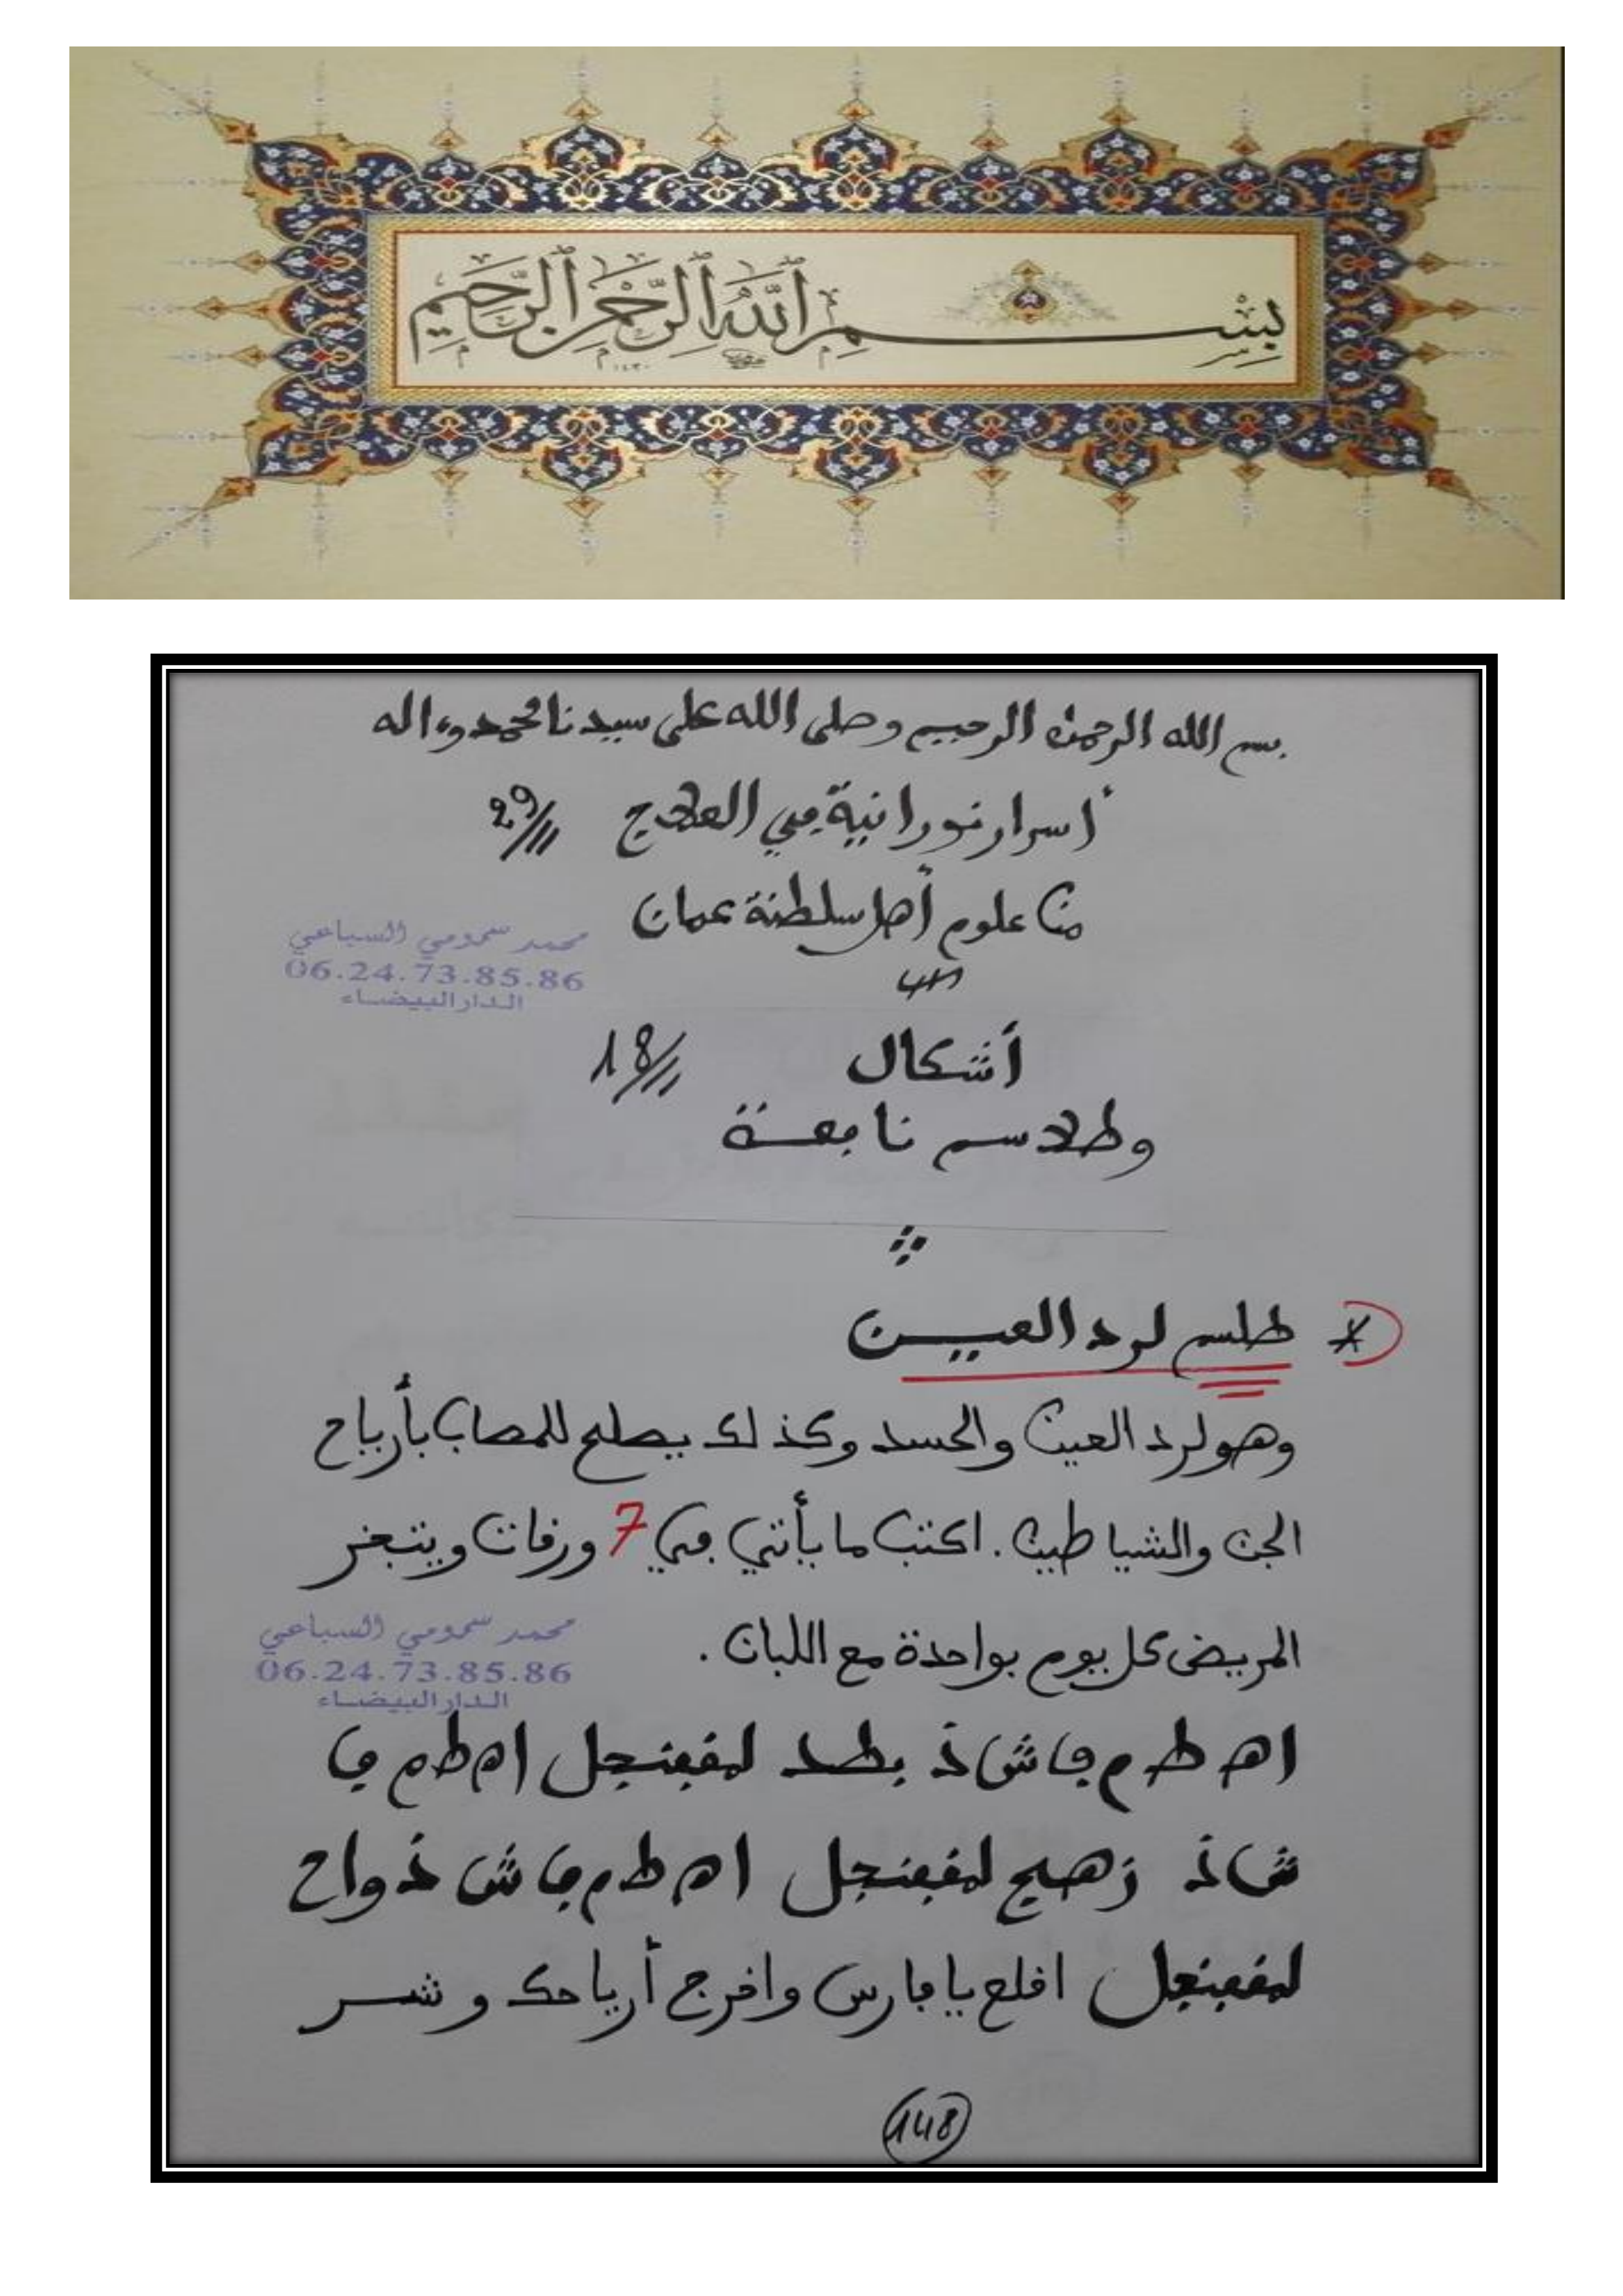 بِسْمِ ٱللَّهِ ٱلرَّحْمَٰنِ ٱلرَّحِيمِ
بسم الله الرحمن الرحيم وصلى الله على سيدنا محمد وءاله
أسرار نورانية في العلاج 29
من علوم أهل سلطنة عمان
محمد سمومي السباعي
06.24.73.85.86
الدار البيضاء
أشكال 18
وطلاسم نافعة
طلسم لرد العين
وهو لرد العين والحسد وكذلك يصلح للمصاب بأرياح
الجن والشياطين . اكتب ما يأتي في 7 ورقات ويتبخر
المريض كل يوم بواحدة مع اللبان .
محمد سمومي السباعي
06.24.73.85.86
الدار البيضاء
اه ط م ف ش ذ بطد لمقفنجل اه ط م ف
ش ذ زهج لمقفنجل اه ط م ف ش ذ واح
لمقفنجل اقلع يا فارس واخرج أرياحك وشر
148